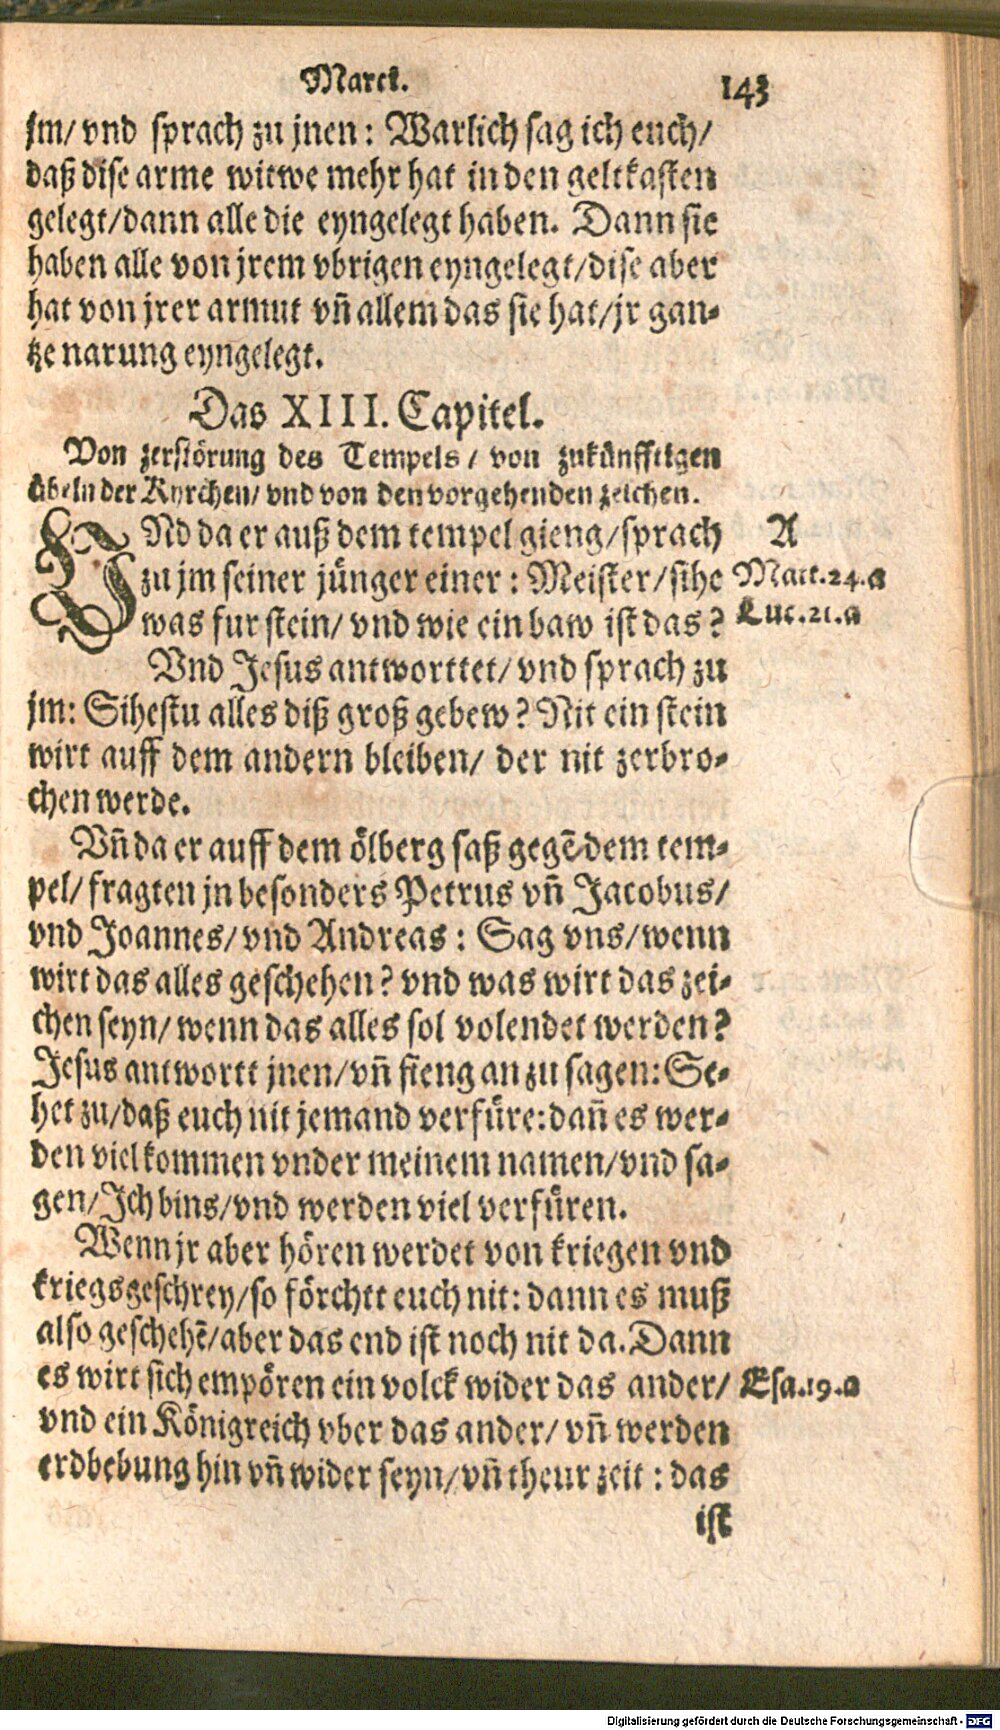 Marck. 143
jm/ vnd sprach zu jnen: Warlich sag ich euch/
daß dise arme witwe mehr hat in den geltkasten
gelegt/dann alle die eyngelegt haben. Dann sie
haben alle von jrem vbrigen eyngelegt/dise aber
hat von jrer armut vñ allem das sie hat/jr gan-
tze narung eyngelegt.
Das XIII. Capitel.
Von zerstörung des Tempels/ von zukünfftigen
übeln der Kyrchen/ vnd von den vorgehenden zeichen.
VNd da er auß dem tempel gieng/sprach A
zu jm seiner jünger einer: Meister/sihe Matt.24.a
was fur stein/ vnd wie ein baw ist das? Luc.21.a
Vnd Jesus antworttet/ vnd sprach zu
jm: Sihestu alles diß groß gebew? Nit ein stein
wirt auff dem andern bleiben/ der nit zerbro-
chen werde.
Vñ da er auff dem ölberg saß gegē dem tem-
pel/ fragten jn besonders Petrus vñ Jacobus/
vnd Joannes/ vnd Andreas: Sag vns/wenn
wirt das alles geschehen? vnd was wirt das zei-
chen seyn/ wenn das alles sol volendet werden?
Jesus antwortt jnen/vñ fieng an zu sagen: Se-
het zu/daß euch nit jemand verfüre:dañ es wer-
den viel kommen vnder meinem namen/vnd sa-
gen/Ich bins/vnd werden viel verfüren.
Wenn jr aber hören werdet von kriegen vnd
kriegsgeschrey/so förchtt euch nit: dann es muß
also geschehē/aber das end ist noch nit da. Dann
es wirt sich empören ein volck wider das ander/ Esa.19.a
vnd ein Königreich vber das ander/ vñ werden
erdbebung hin vñ wider seyn/vñ theur zeit: das
ist
Digitalisierung gefördert durch die Deutsche Forschungsgemeinschaft - DFG